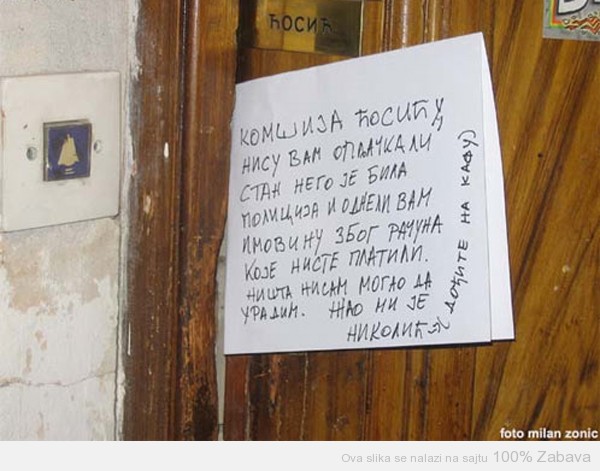 ЋОСИЋ
КОМШИЈА ЋОСИЋУ,
НИСУ ВАМ ОПЉАЧКАЛИ
СТАН НЕГО ЈЕ БИЛА
ПОЛИЦИЈА И ОДНЕЛИ ВАМ
ИМОВИНУ ЗБОГ РАЧУНА
КОЈЕ НИСТЕ ПЛАТИЛИ.
НИШТА НИСАМ МОГАО ДА
УРАДИМ. ЖАО МИ ЈЕ
НИКОЛИЋ
(ДОЂИТЕ НА КАФУ)
foto milan zonic
Ova slika se nalazi na sajtu 100% Zabava